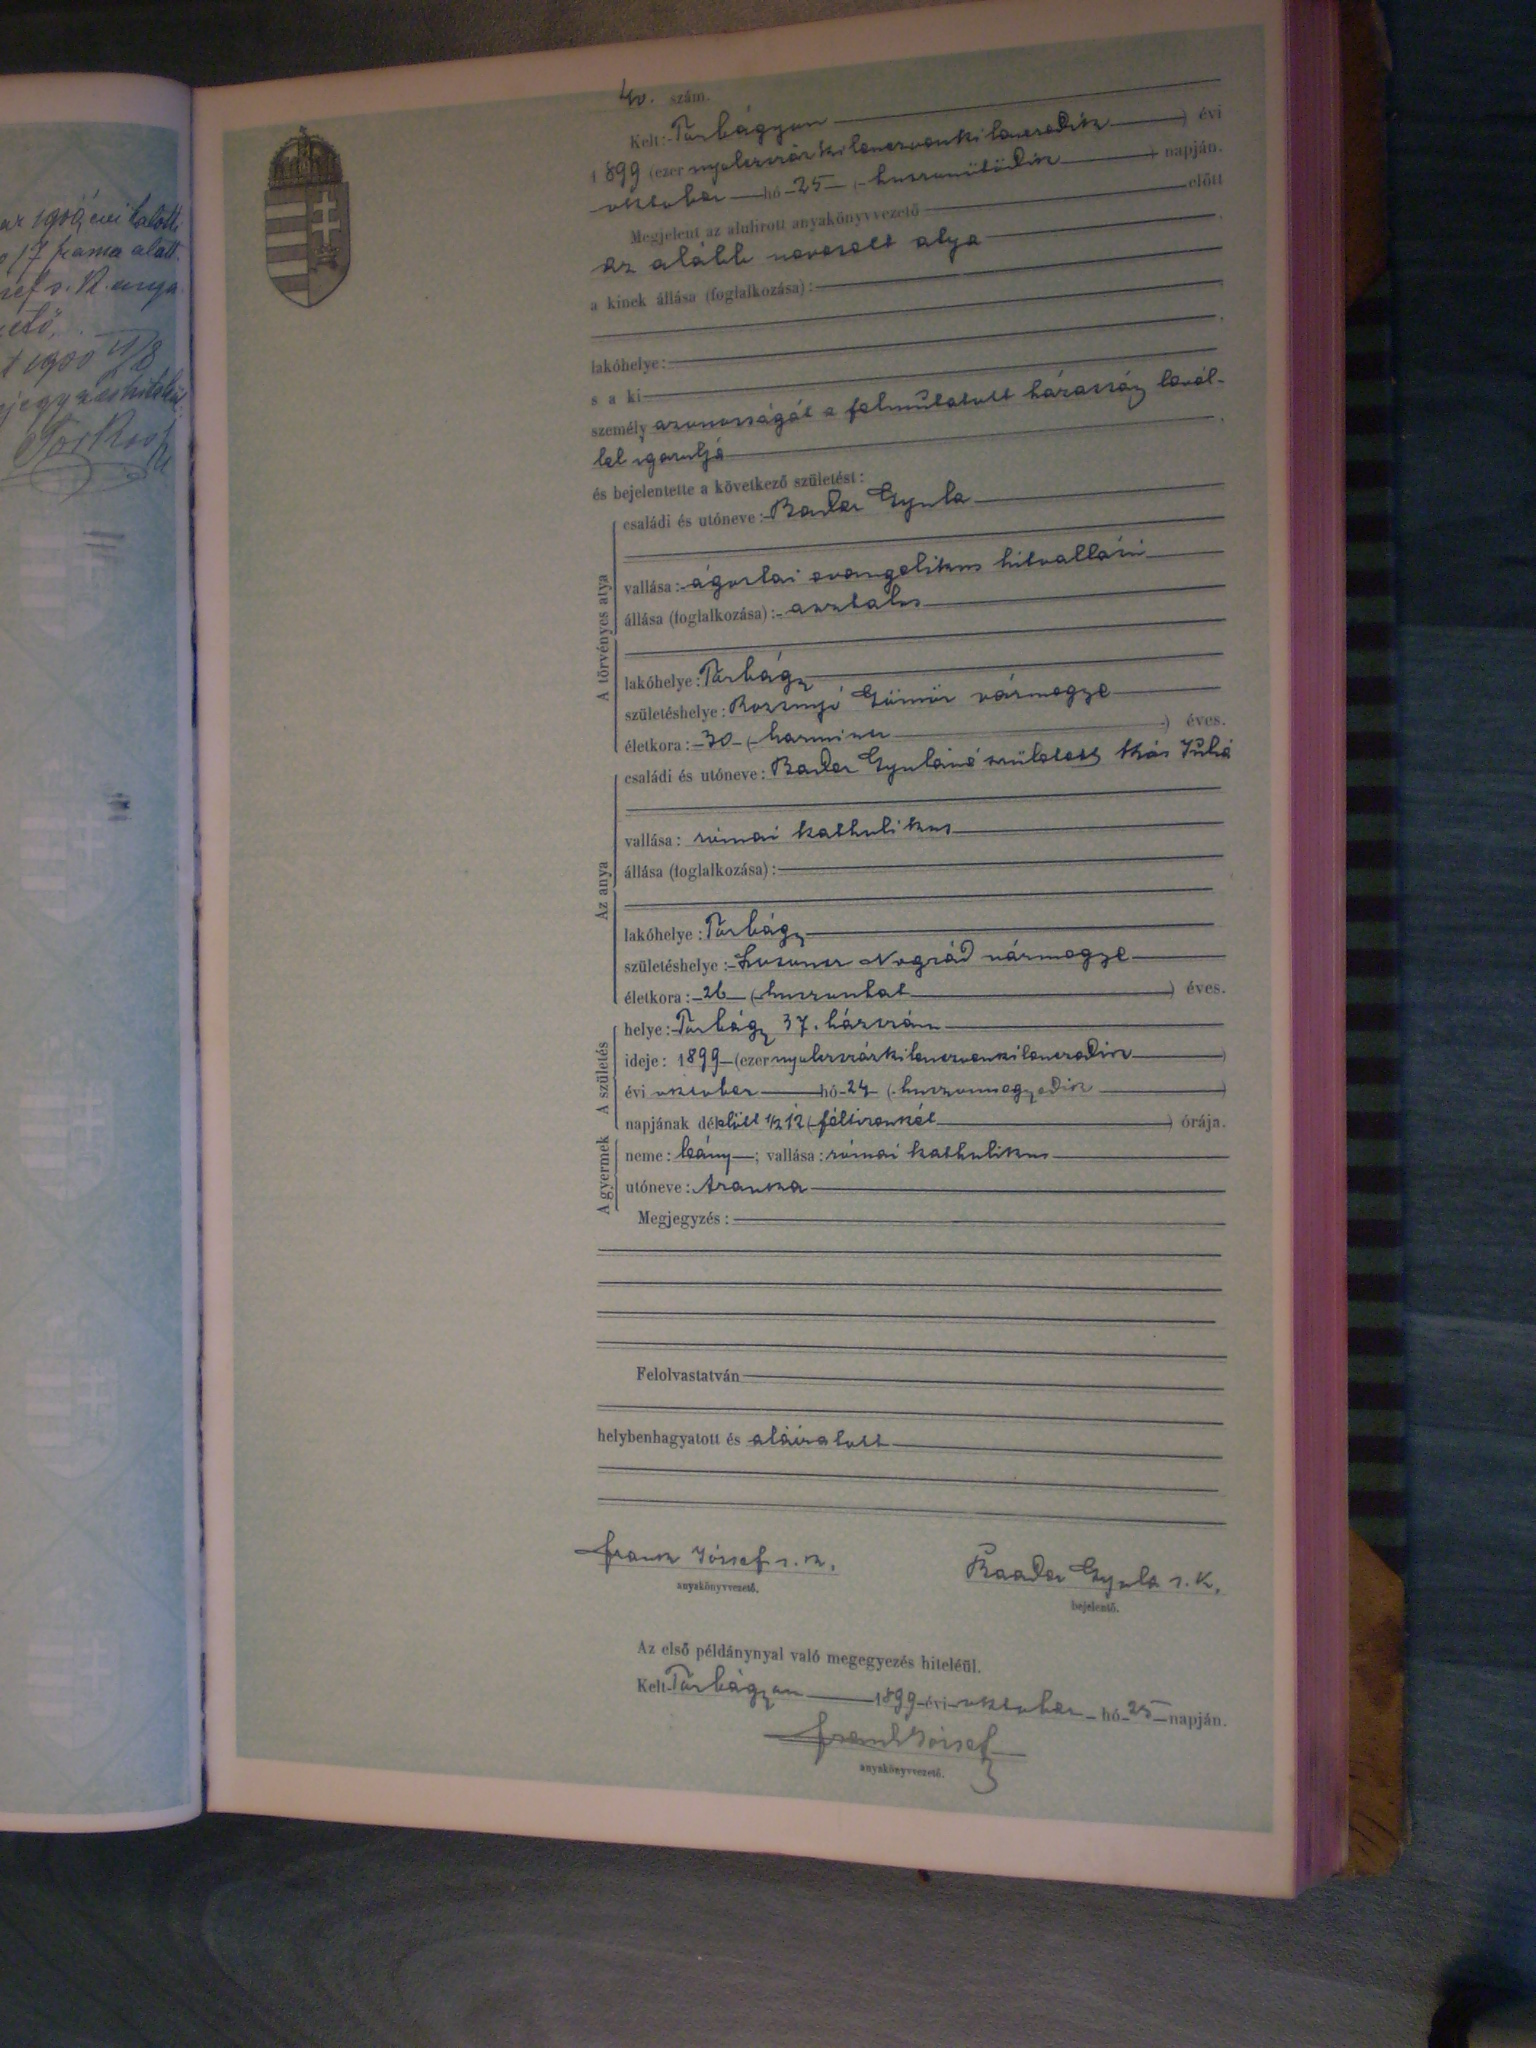 ar 1900 évi halotti
17 szama alatt
1900
40. szám.
Kelt: Torbágyon
1899 (ezer nyolczszázkilenczvenkilenczedik) évi
október hó 25 (huszonötödik) napján.
Megjelent az alulirott anyakönyvvezető előtt
az alább nevezett atya
a kinek állása (foglalkozása):
lakóhelye:
s a ki
személy azonosságát a felmutatott házasság levél-
lel igazolja
és bejelentette a következő születést:
A törvényes atya
családi és utóneve: Bader Gyula
vallása: ágostai evangelikus hitvallású
állása (foglalkozása): asztalos
lakóhelye: Torbágy
születéshelye: Rozsnyó Gömör vármegye
életkora: 30 (harmincz) éves.
Az anya
családi és utóneve: Bader Gyuláné született
vallása: római katholikus
állása (foglalkozása):
lakóhelye: Torbágy
születéshelye: Losoncz Nográd vármegye
életkora: 26 (huszonhat) éves.
A születés
helye: Torbágy 37. házszám
ideje: 1899 (ezer nyolczszázkilenczvenkilenczedik)
évi október hó 24 (huszonnegyedik)
napjának délelött 1/2 12 (féltizenkét) órája.
A gyermek
neme: leány; vallása: római katholikus
utóneve: Aranka
Megjegyzés:
Felolvastatván
helybenhagyatott és aláiratott
Frank József s. k.
anyakönyvvezető.
Baader Gyula s. k.
bejelentő.
Az első példánynyal való megegyezés hiteléül.
Kelt Torbágyon 1899 évi október hó 25 napján.
Frank József
anyakönyvvezető.